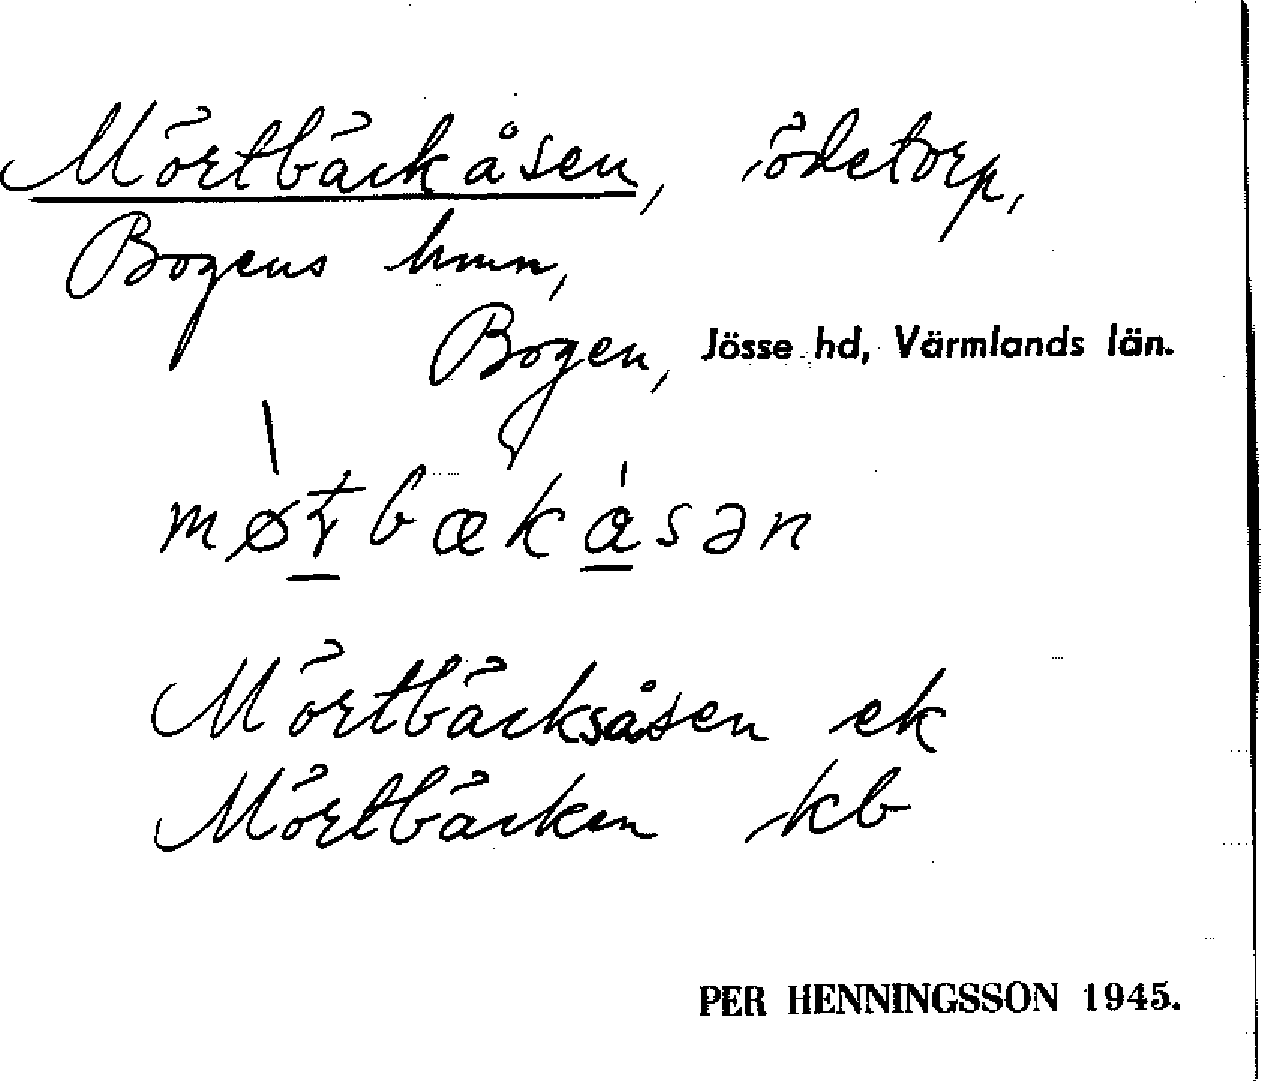 Mörtbäckåsen, ödetorp,
Bogens hmn,
Bogen, Jösse hd, Värmlands län.
Mörtbäcksåsen ek
Mörtbäcken kb
PER HENNINGSSON 1945.